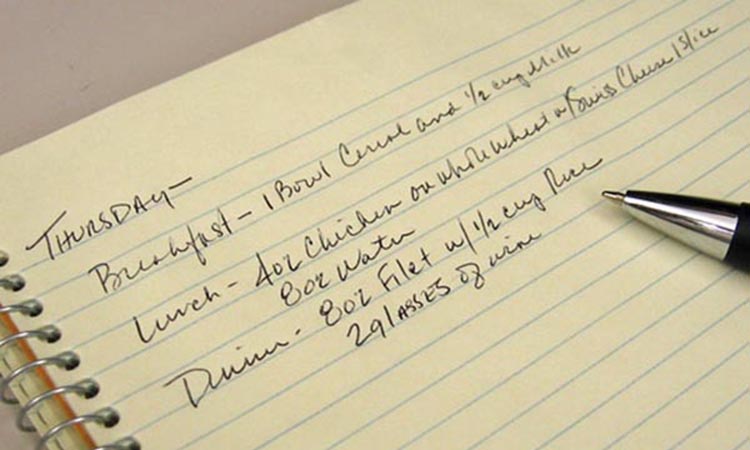 THURSDAY —
Breakfast - 1 Bowl Cereal and 1/2 cup Milk
Lunch - 4oz Chicken on whole wheat w/Swiss Cheese 1 Slice
8oz Water
Dinner - 8oz Filet w/ 1/2 cup Rice
2 glASSES of wine